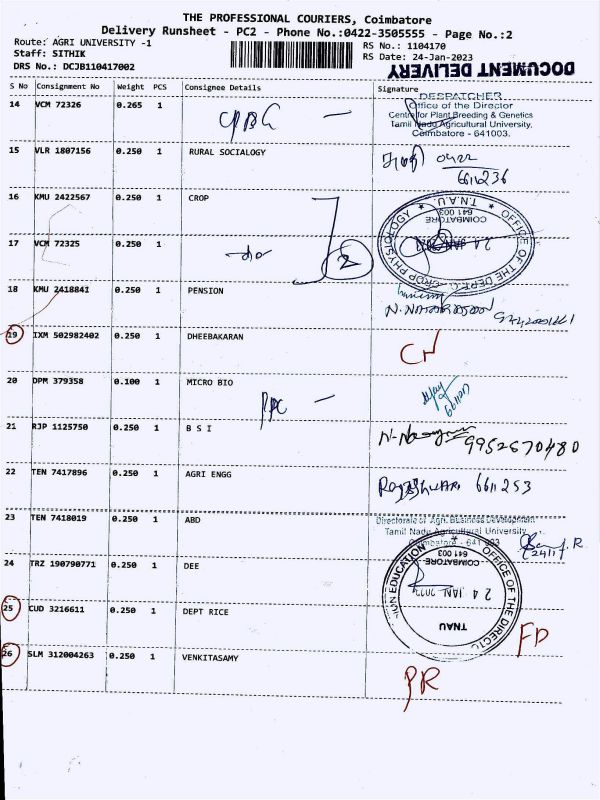 THE PROFESSIONAL COURIERS, Coimbatore
Delivery Runsheet - PC2 - Phone No.:0422-3505555 - Page No.:2
Route: AGRI UNIVERSITY -1
RS No.: 1104170
Staff: SITHIK
RS Date: 24-Jan-2023
DRS No.: DCJB110417002
DOCUMENT DELIVERY
S No Consignment No Weight PCS Consignee Details Signature
14 VCM 72326 0.265 1 CPBG
DESPATCHER
Office of the Director
Centre for Plant Breeding & Genetics
Tamil Nadu Agricultural University,
Coimbatore - 641003.
15 VLR 1807156 0.250 1 RURAL SOCIALOGY
6611236
16 KMU 2422567 0.250 1 CROP
OFFICE OF THE DEPT. CROP PHYSIOLOGY
T.N.A.U.
COIMBATORE
641 003
24 JAN 2023
17 VCM 72325 0.250 1 -do- 2
18 KMU 2418841 0.250 1 PENSION
19 IXM 502982402 0.250 1 DHEEBAKARAN
20 DPM 379358 0.100 1 MICRO BIO
21 RJP 1125750 0.250 1 B S I 9952670480
22 TEN 7417896 0.250 1 AGRI ENGG Rajeshwari 6611253
23 TEN 7418019 0.250 1 ABD
Directorate of Agri. Business Development
Tamil Nadu Agricultural University
Coimbatore - 641 003
24 TRZ 190790771 0.250 1 DEE
OFFICE OF THE
COIMBATORE
641 003
24 JAN 2023
TNAU
25 CUD 3216611 0.250 1 DEPT RICE FD
26 SLM 312004263 0.250 1 VENKITASAMY
PR